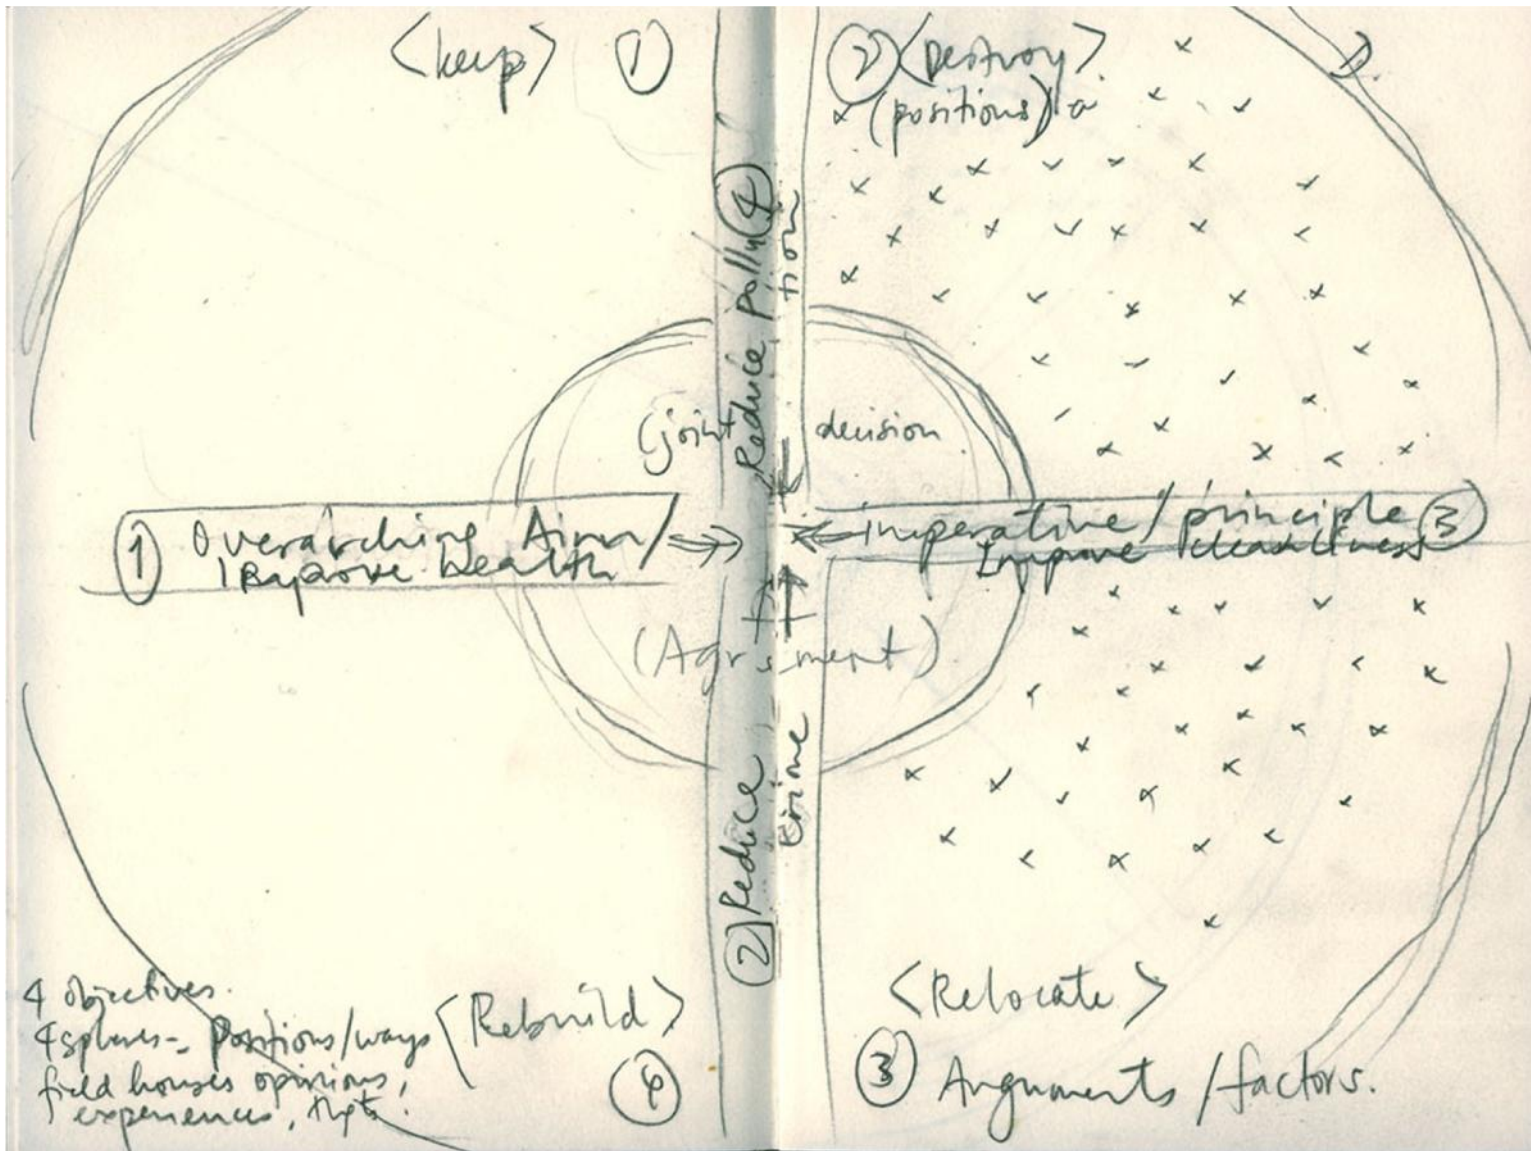 <keep> ①
② <Destroy>
(positions)
④ Reduce pollu
tion
(joint decision
① Overarching Aim/
Improve health
imperative/principle ③
Improve cleanliness
(Agreement)
② Reduce
Crime
4 objectives.
4 spheres - Positions/ways
field houses opinions,
experiences,
<Rebuild>
④
<Relocate>
③ Arguments/factors.